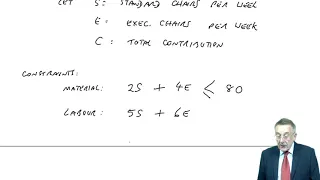 LET S: STANDARD CHAIRS PER WEEK
E: EXEC. CHAIRS PER WEEK
C: TOTAL CONTRIBUTION
CONSTRAINTS:
MATERIAL: 2S + 4E ≤ 80
LABOUR: 5S + 6E